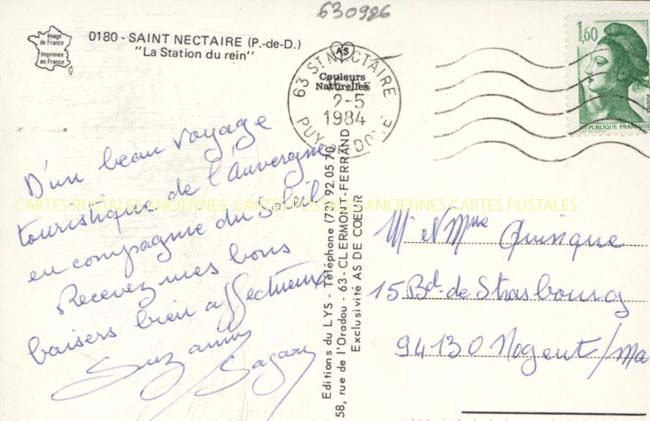 630986
Image
de France
Imprimée
en France
0180 - SAINT NECTAIRE (P.-de-D.)
"La Station du rein"
AS
Couleurs
Naturelles
63 ST NECTAIRE
2-5
1984
PUY DE DOME
1,60
REPUBLIQUE FRANÇAISE
D'un beau voyage
touristique de l'Auvergne
en compagnie du Soleil
Recevez mes bons
baisers bien affectueux
Suzanne
CARTES POSTALES ANCIENNES CARTES POSTALES ANCIENNES CARTES POSTALES
Editions du LYS - Téléphone (73) 92.05 70
58, rue de l'Oradou - 63 - CLERMONT-FERRAND
Exclusivité AS DE COEUR
Mr et Mme
15 Bd. de Strasbourg
94130 Nogent/Ma